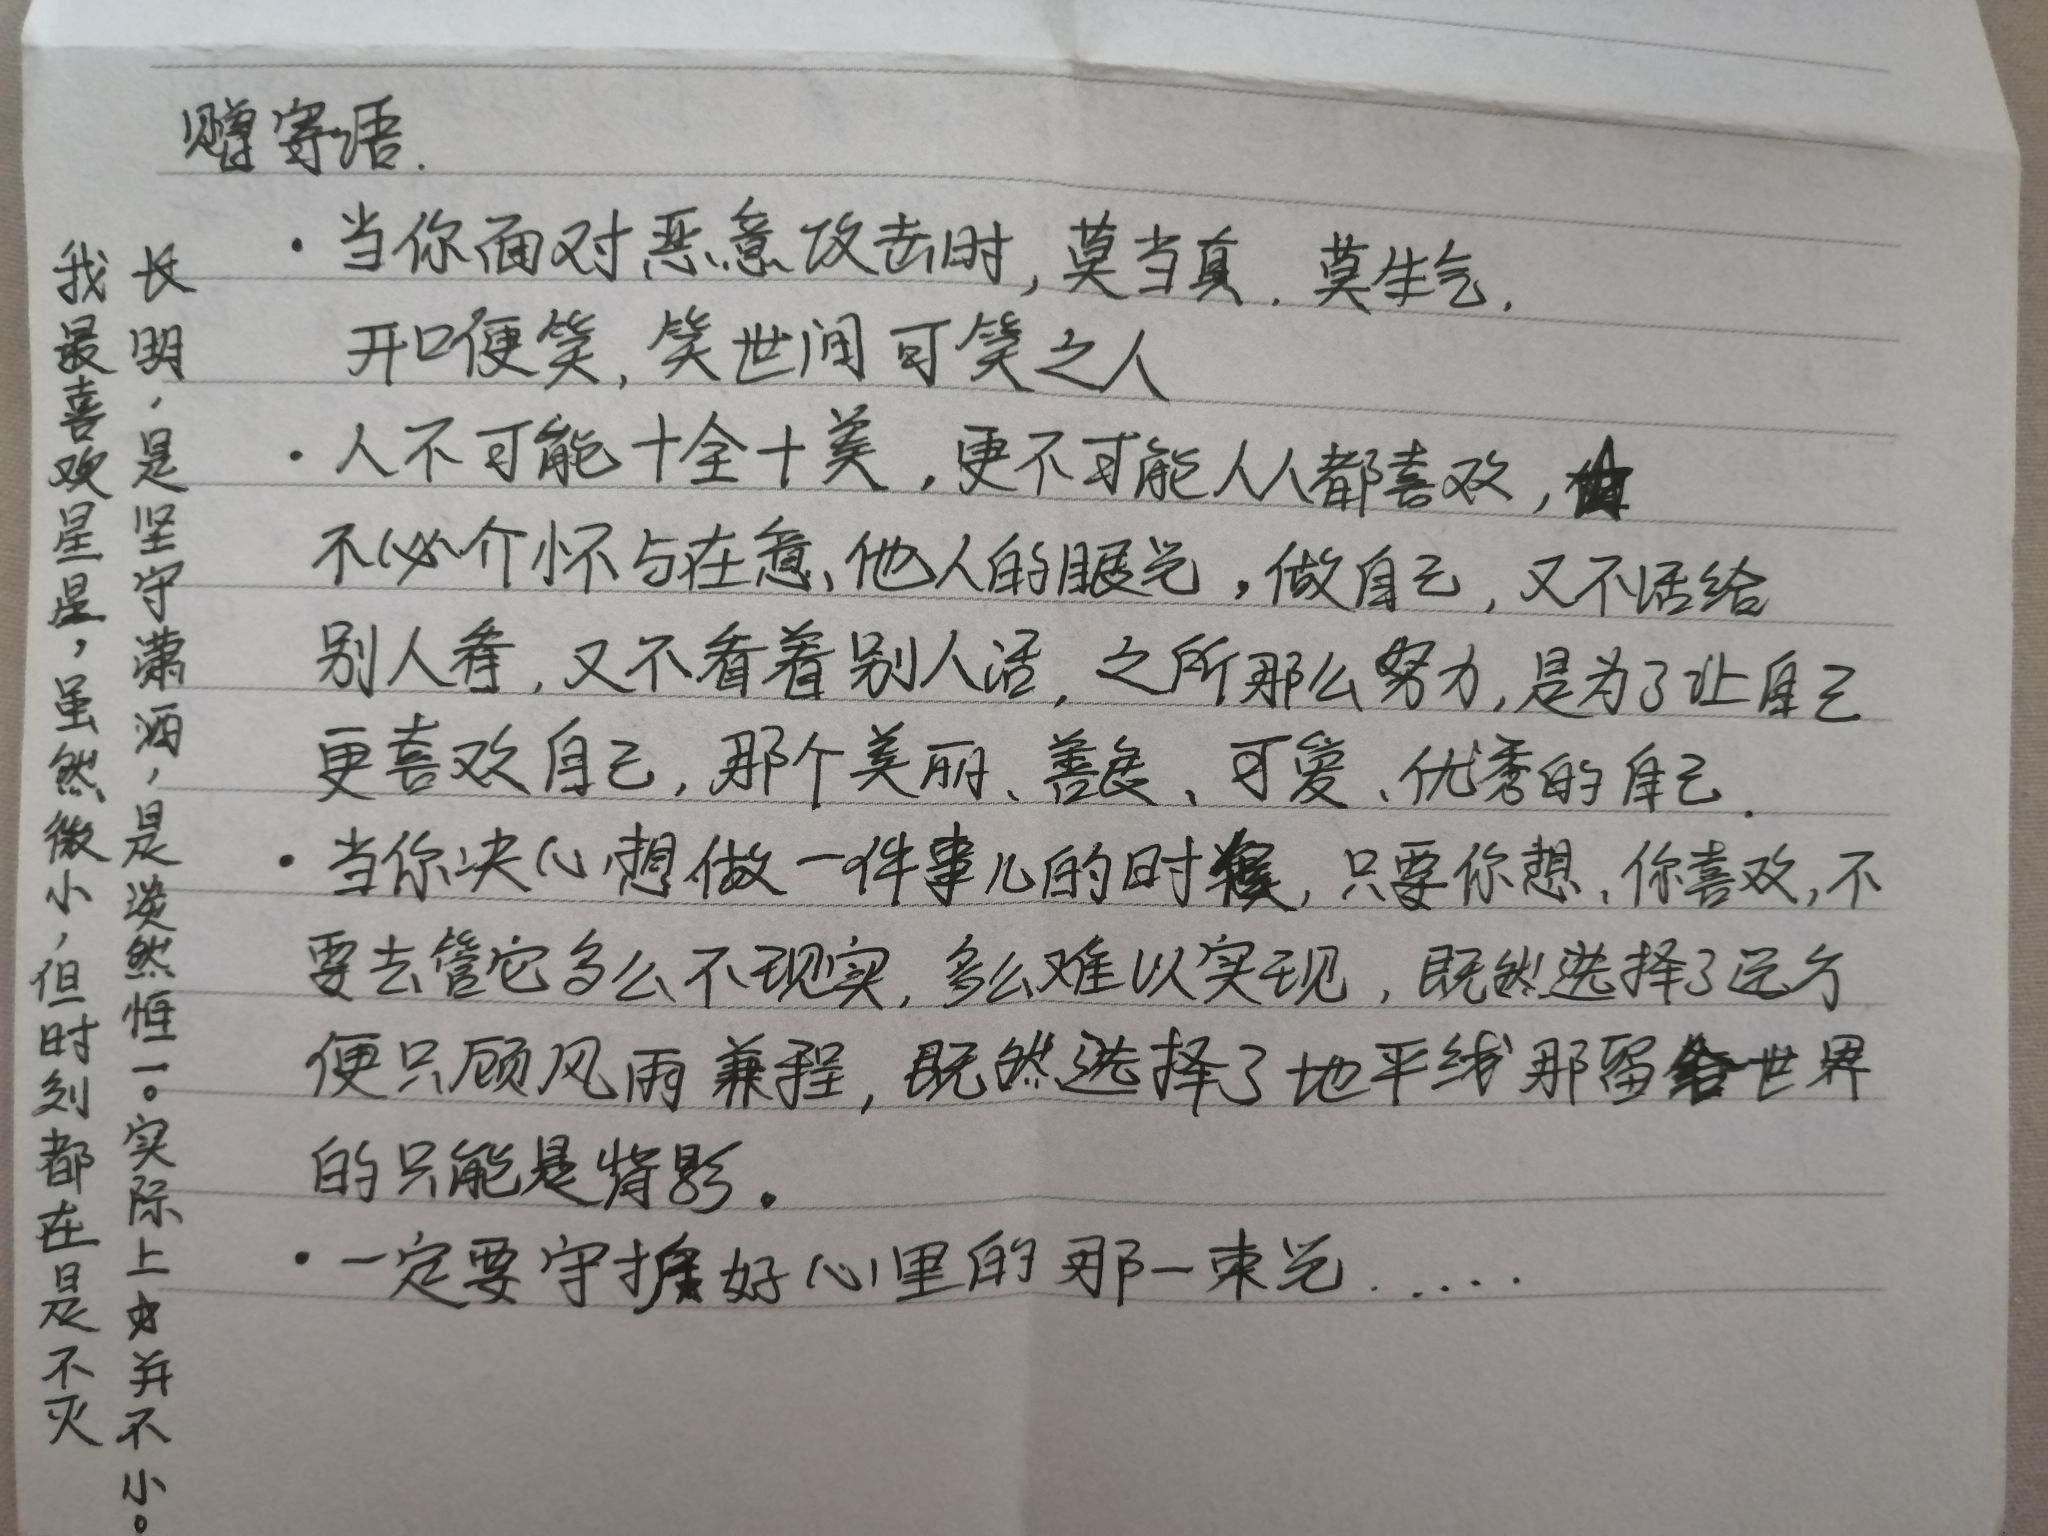 赠寄语.
·当你面对恶意攻击时,莫当真.莫生气.
开口便笑,笑世间可笑之人
·人不可能十全十美,更不可能人人都喜欢,
不必介怀与在意、他人的眼光,做自己,又不活给
别人看,又不看着别人活,之所那么努力,是为了让自己
更喜欢自己,那个美丽、善良、可爱、优秀的自己.
·当你决心想做一件事儿的时候,只要你想、你喜欢,不
要去管它多么不现实,多么难以实现,既然选择了远方
便只顾风雨兼程,既然选择了地平线那留给世界
的只能是背影。
·一定要守护好心里的那一束光......
我最喜欢星星,虽然微小,但时刻都在是不灭
长明,是坚守潇洒,是淡然恒一。实际上并不小。